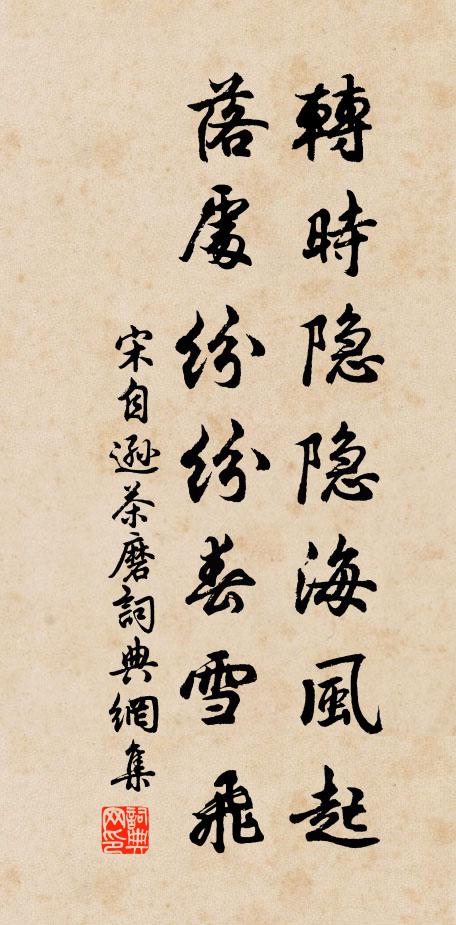 轉時隐隐海風起
落處纷纷春雪飛
宋自遜茶磨詞典網集
詞典网印